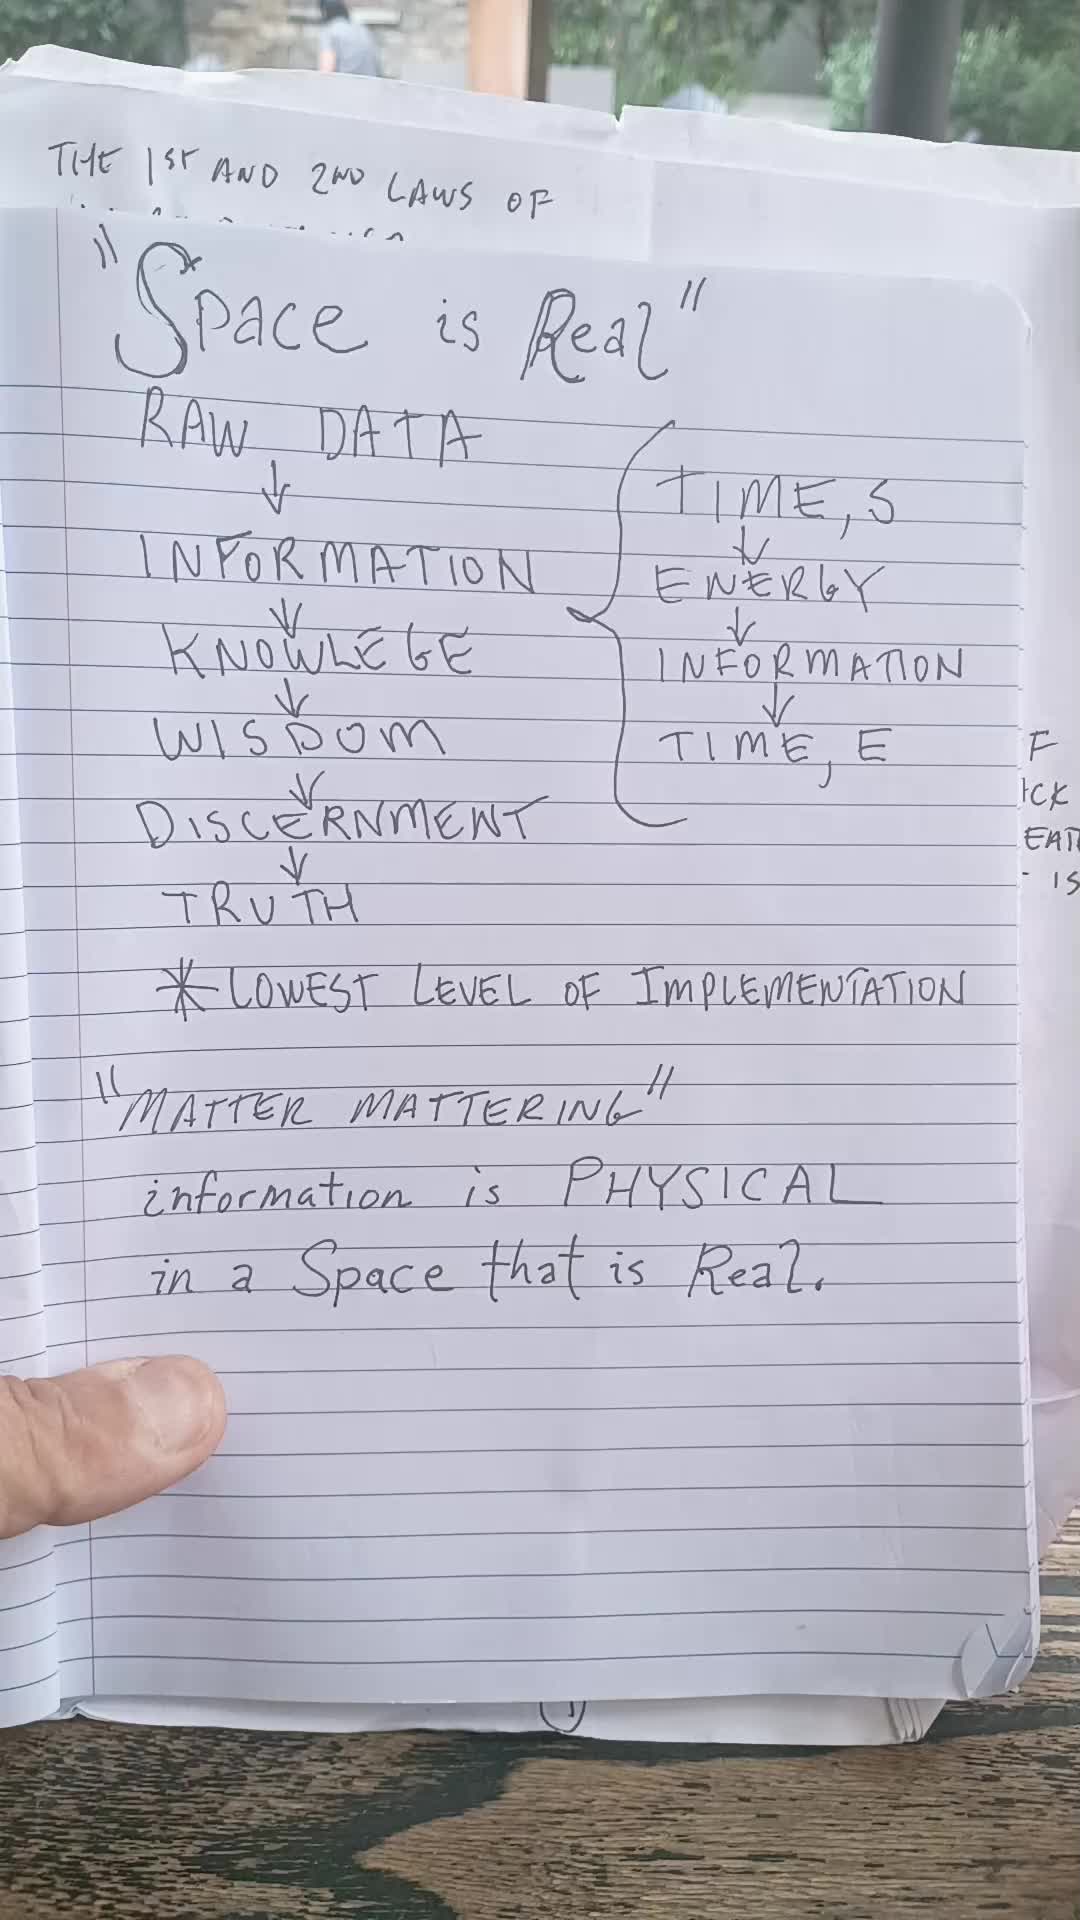 THE 1ST AND 2ND LAWS OF
"Space is Real"
RAW DATA
↓
INFORMATION
↓
KNOWLEGE
↓
WISDOM
↓
DISCERNMENT
↓
TRUTH
TIME, S
↓
ENERGY
↓
INFORMATION
↓
TIME, E
* LOWEST LEVEL OF IMPLEMENTATION
"MATTER MATTERING"
information is PHYSICAL
in a Space that is Real.
F
IS